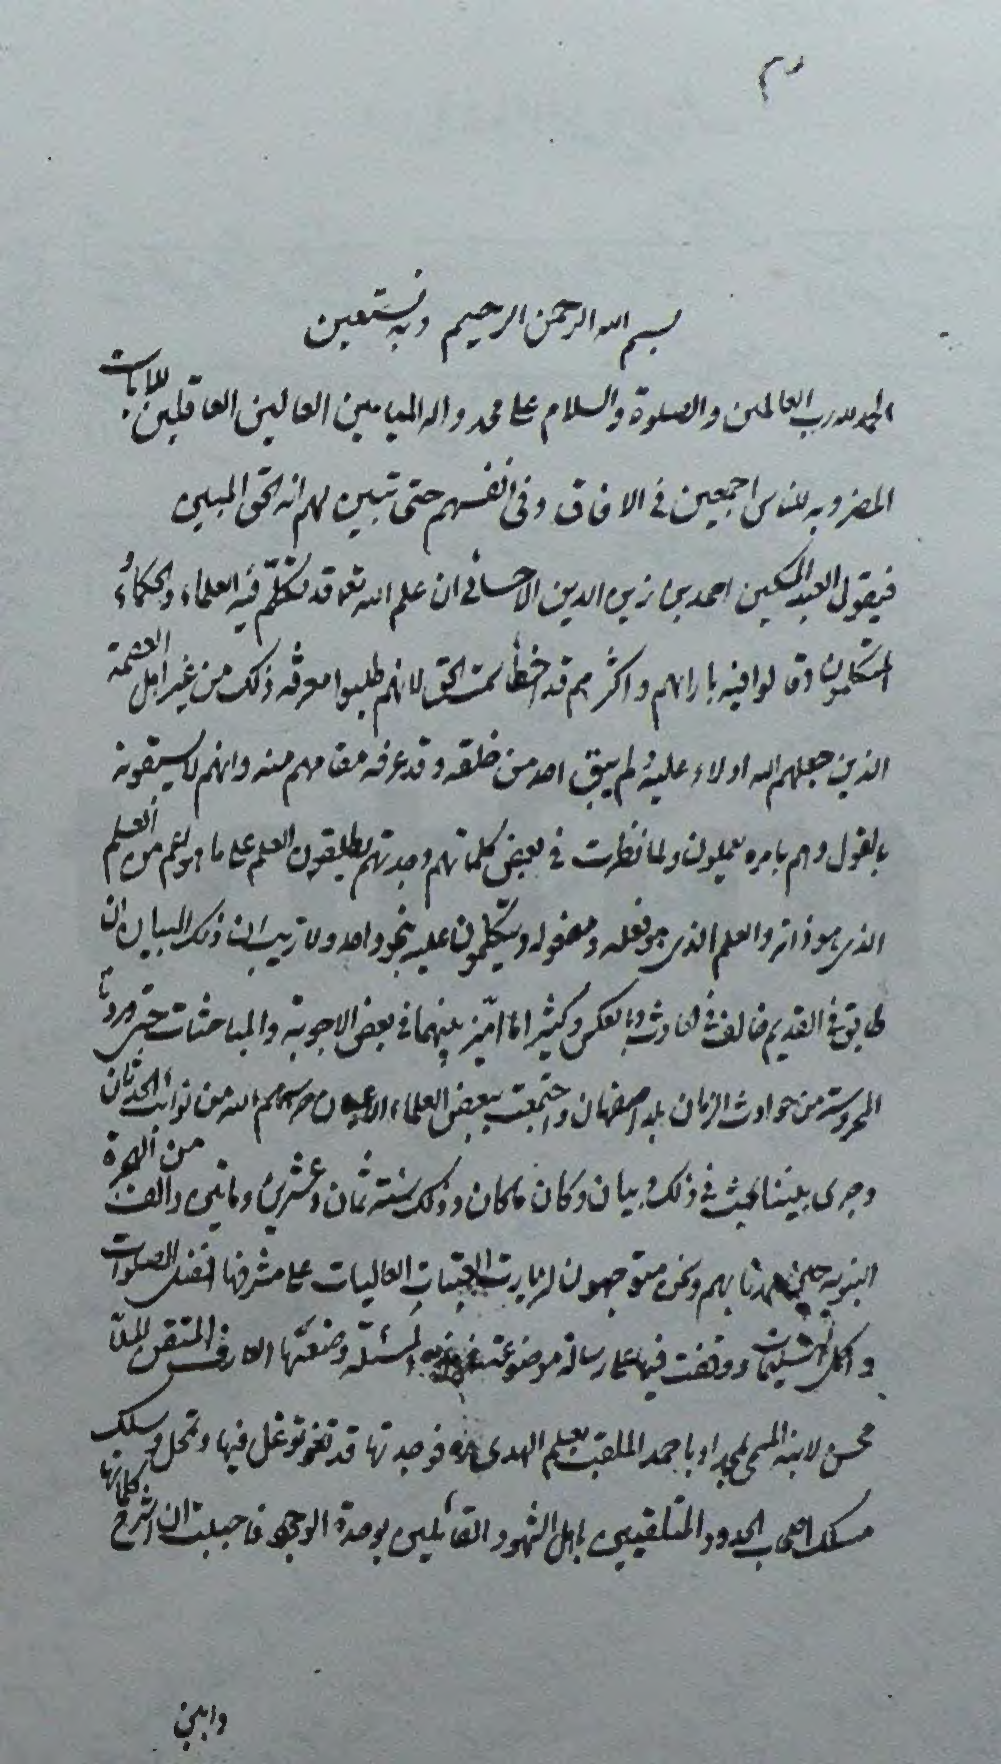 بسم الله الرحمن الرحيم وبه نستعين
الحمد لله رب العالمين والصلوة والسلام على محمد واله الميامين العالين العاقلين للايات
المضروبه للناس اجمعين في الافاق وفي انفسهم حتى تبين لهم انه الحق المبين
فيقول العبد المسكين احمد بن زين الدين الاحسائي ان علم الله تعو قد تكلم فيه العلماء والحكماء و
المتكلمون وقالوا فيه بارائهم واكثرهم قد اخطأ سمت الحق لانهم طلبوا معرفة ذلك من غير اهل العصمة
الذين جعلهم الله اولاء عليه ولم يبق احد من خلقه وقد عرفه مقامهم منه وانهم لا يسبقونه
بالقول وهم بامره يعملون ولما نظرت في بعض كلماتهم وجدتهم يطلقون العلم على ما هو لهم من العلم
الذي هو ذاته والعلم الذي هو فعله ومفعوله ويتكلمون عليه بنحو واحد ولا ريب ان ذلك البيان ان
طابق في القديم خالف في الحادث وبالعكس وكثيرا ما اميز بينهما في بعض الاجوبة والمباحثات حتى وردنا
المحروسة من حوادث الزمان بلد اصفهان واجتمعت ببعض العلماء الاعيان حرسهم الله من نوائب الحدثان
وجرى بيننا بحث في ذلك وبيان وكان ما كان وذلك سنة ثمان وعشرين ومائتين والف من الهجرة
النبوية بهم ونحن متوجهون لزيارت العتبات العاليات على مشرفها افضل الصلوات
واكمل التسليمات ووقفت فيها على رسالة موضوعة المسئلة وضعها العارف المتقن الملا
محسن لابنه المسمى باحمد الملقب بعلم الهدى فوجدتها قد توغل فيها وتمحل وسلك
مسلك اصحاب الحدود المتلقبين باهل الشهود القائلين بوحدة الوجود فاحببت ان اشرح كلماتها
وابين